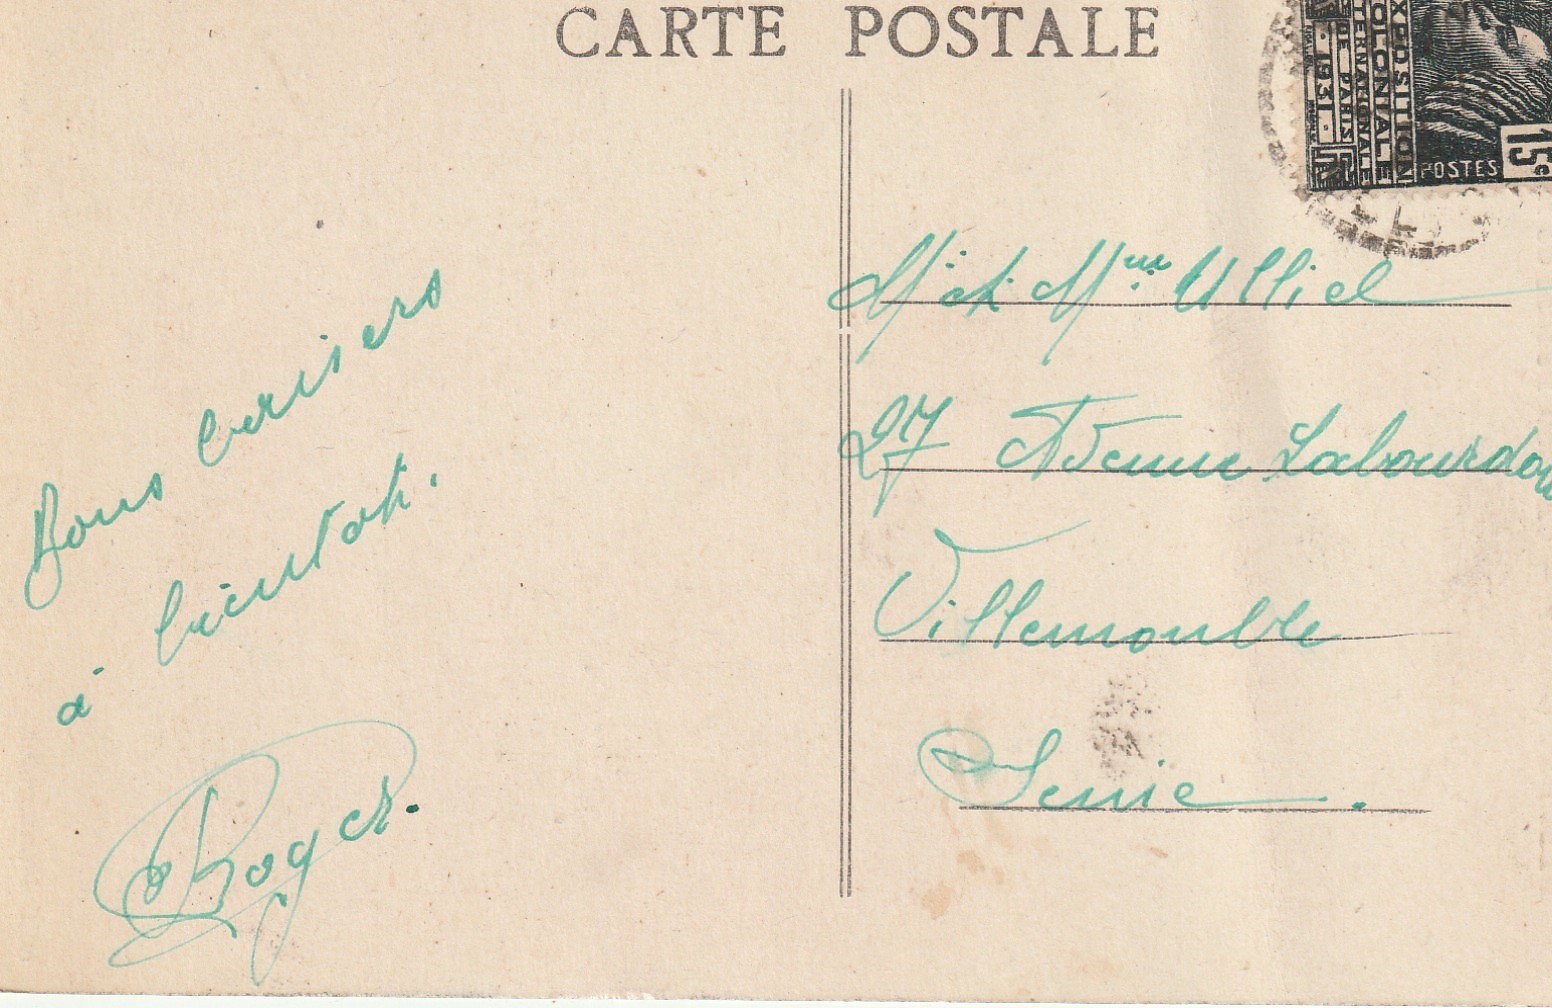 CARTE POSTALE
EXPOSITION
COLONIALE
INTERNATIONALE
DE PARIS
1931
POSTES
15c
Bons baisers
à bientôt.
Roger.
Mr et Mme Ulliel
27 Avenue Labourdon
Villemomble
Seine.